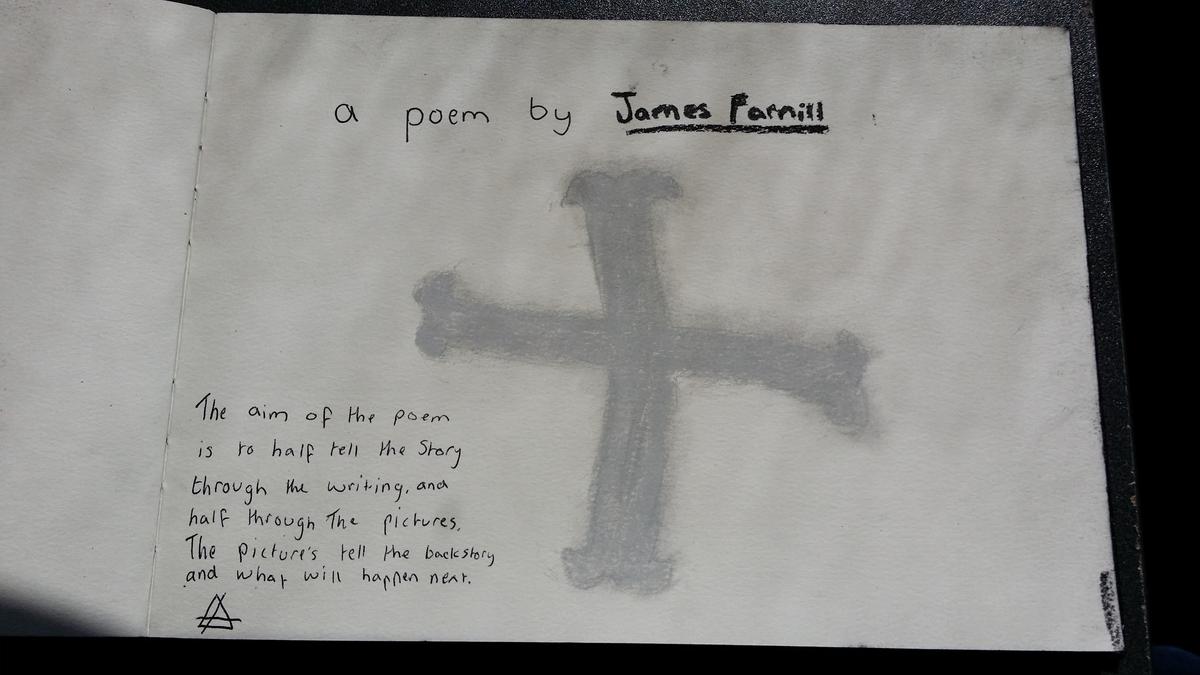 a poem by James Farnill
The aim of the poem
is to half tell the Story
through the writing, and
half through The pictures.
The picture's tell the backstory
and what will happen next.